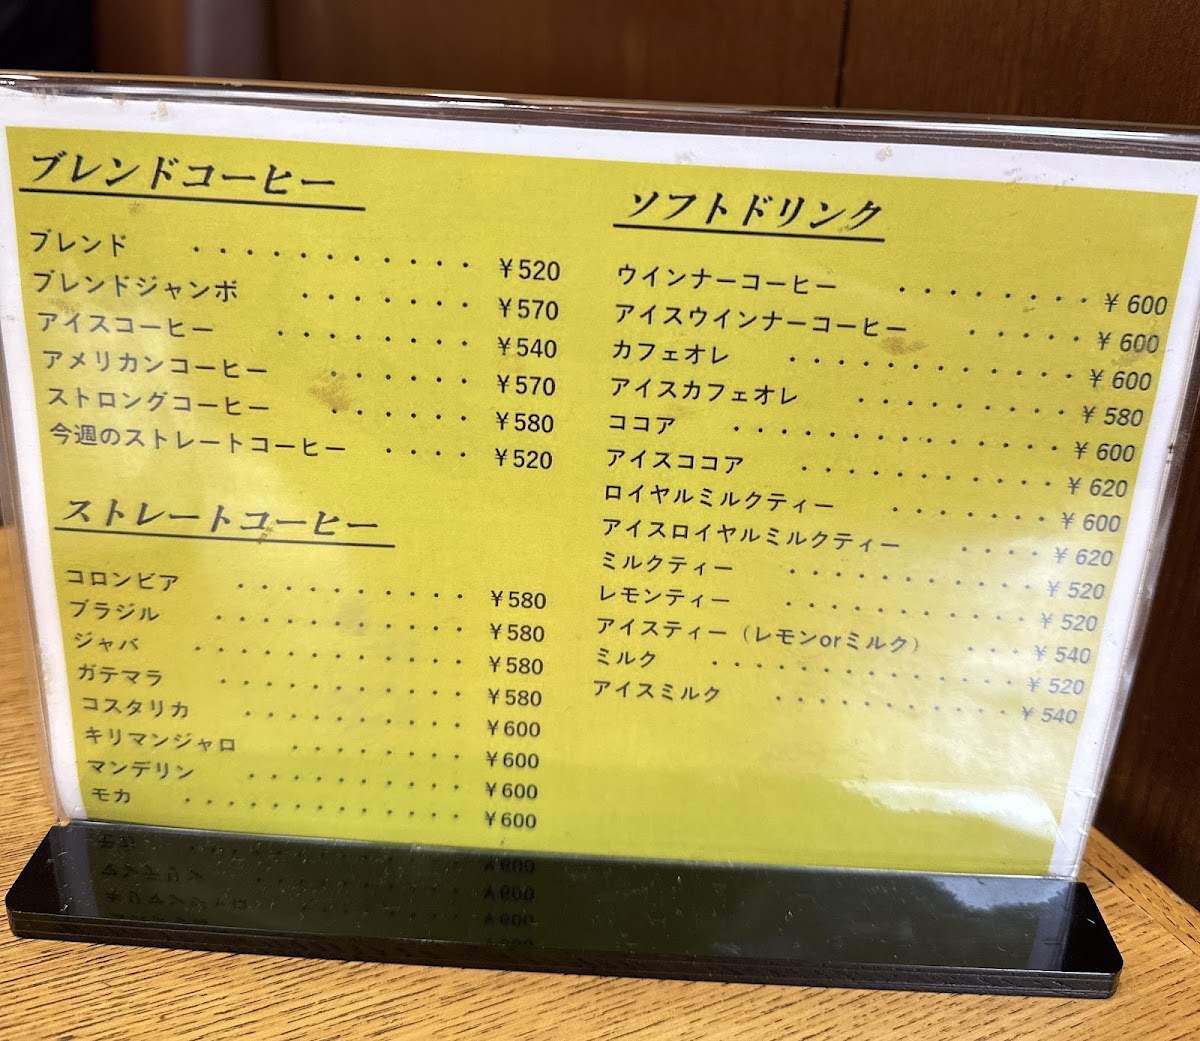 ブレンドコーヒー
ブレンド ・・・・・・・・・・・・ ¥520
ブレンドジャンボ ・・・・・・・ ¥570
アイスコーヒー ・・・・・・・・ ¥540
アメリカンコーヒー ・・・・・・ ¥570
ストロングコーヒー ・・・・・・ ¥580
今週のストレートコーヒー ・・・・ ¥520
ストレートコーヒー
コロンビア ・・・・・・・・・・ ¥580
ブラジル ・・・・・・・・・・・ ¥580
ジャバ ・・・・・・・・・・・・ ¥580
ガテマラ ・・・・・・・・・・・ ¥580
コスタリカ ・・・・・・・・・・ ¥600
キリマンジャロ ・・・・・・・・ ¥600
マンデリン ・・・・・・・・・・ ¥600
モカ ・・・・・・・・・・・・・ ¥600
ソフトドリンク
ウインナーコーヒー ・・・・・・・・・ ¥600
アイスウインナーコーヒー ・・・・・・ ¥600
カフェオレ ・・・・・・・・・・・・・ ¥600
アイスカフェオレ ・・・・・・・・・・ ¥580
ココア ・・・・・・・・・・・・・・・ ¥600
アイスココア ・・・・・・・・・・・・ ¥620
ロイヤルミルクティー ・・・・・・・・ ¥600
アイスロイヤルミルクティー ・・・・ ¥620
ミルクティー ・・・・・・・・・・・・ ¥520
レモンティー ・・・・・・・・・・・・ ¥520
アイスティー（レモンorミルク） ・・・ ¥540
ミルク ・・・・・・・・・・・・・・ ¥520
アイスミルク ・・・・・・・・・・・ ¥540